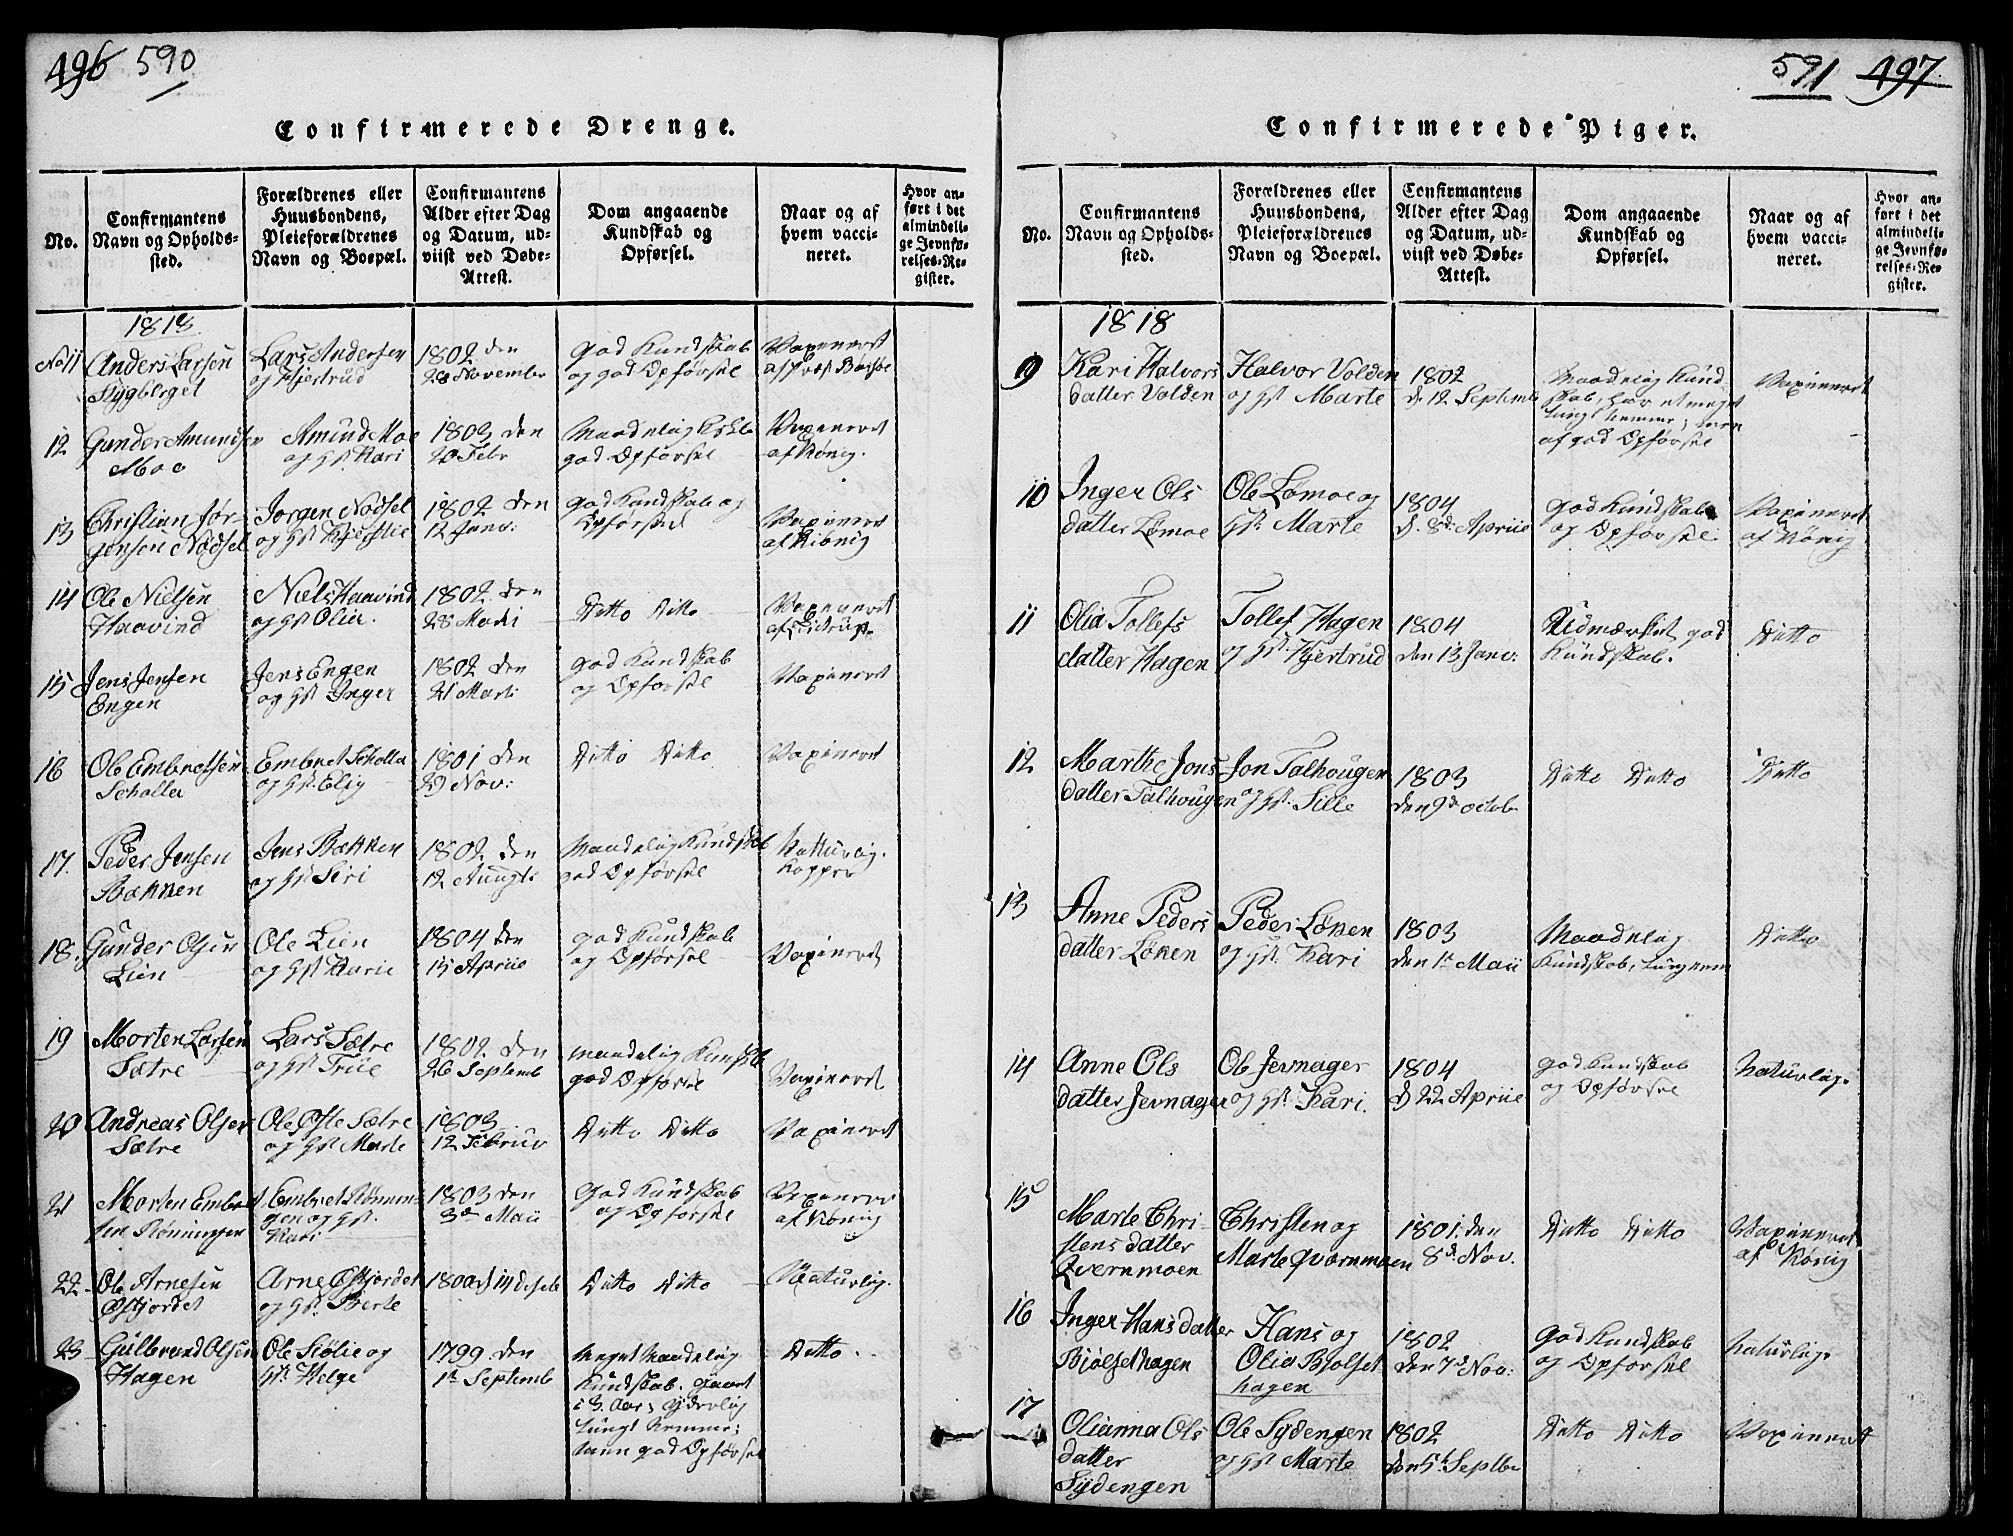 496 590
Confirmerede Drenge.
No.
Confirmantens
Navn og Opholds-
sted.
Forældrenes eller
Huusbondens,
Pleieforældrenes
Navn og Boepæl.
Confirmantens
Alder efter Dag
og Datum, ud-
viist ved Døbe-
Attest.
Dom angaaende
Kundskab og
Opførsel.
Naar og af
hvem vacci-
neret.
Hvor an-
ført i det
almindeli-
ge Jevnfø-
relses-Re-
gister.
1818
No 11
Anders Larsen
Kygberget
Lars Andersen
og Kjertrud
1802 den
28 November
god Kundskab
og god Opførsel
Vaxineret
af
12
Gunder Amundsen
Moe
Amund Moe
og Hst. Kari
1803 den
20 Febr
Maadelig
god Opførsel
Vaxineret
af König.
13
Christian Jör-
gensen Nodset
Jorgen Nodset
og Hst Kjerstie
1802 den
12 Janv:
god Kundskab og
Opførsel
Vaxineret
af König
14
Ole Nielsen
Haavind
Niels Haavind
og Hst Olia.
1802 den
28 Marti
Ditto Ditto
Vaxineret
af
15
Jens Jensen
Engen
Jens Engen
og Hst Inger
1802 den
21 Marti
god Kundskab
og Opførsel
Vaxineret
16
Ole Embretsen
Scholla
Embret Scholla
og Hst. Elig
1801 den
29 Nov:
Ditto Ditto
Vaxineret
17.
Peder Jensen
Bakken
Jens Bakken
og Hst Siri
1802 den
12 Augti
Maadelig Kundskab
god Opførsel
Naturlig.
Kopper
18.
Gunder Olsen
Lien
Ole Lien
og Hst Karie
1804 den
15 Aprile
god Kundskab
og Opførsel
Vaxineret
19
Morten Larsen
Sætre
Lars Sætre
og Hst Trüe
1802. den
26 Septemb
maadelig Kundskb
god Opførsel
Vaxineret
20
Andreas Olsen
Sætre
Ole Øste Sætre
og Hst Marte
1803
12 Februv
Ditto Ditto
Vaxineret
21
Morten Embret
sen Röningen
Embret Rönnin
gen og Hst.
Kari
1803 den
3de Maii
God Kundskab
og Opførsel
Vaxineret
af König
22
Ole Arnesen
Østjordet
Arne Østjordet
og Hst. Berte
1800 d 14 Deseb
Ditto Ditto
Naturlig.
23
Gulbrand Olsen
Hagen
Ole Siölie og
Hst. Helge
1799 den
1st Septemb
Meget Maadelig
Kundskab. gaaet
i 3. Aar; yderlig
tungt Nemme;
men god Opførsel
Ditto.
591 497
Confirmerede Piger.
No.
Confirmantens
Navn og Opholds-
sted.
Forældrenes eller
Huusbondens,
Pleieforældrenes
Navn og Boepæl.
Confirmantens
Alder efter Dag
og Datum, ud-
viist ved Døbe-
Attest.
Dom angaaende
Kundskab og
Opførsel.
Naar og af
hvem vacci-
neret.
Hvor an-
ført i det
almindeli-
ge Jevnfø-
relses-Re-
gister.
1818
9
Kari Halvors
datter Volden
Halvor Volden
og Hst Marte
1802
d. 12 Septemb
Maadelig Kund-
skab, har et meget
tungt Nemme, men
af god Opførsel
Vaxineret
10
Inger Ols
datter Lømoe
Ole Lømoe og
Hst. Marte
1804
d. 8d. Aprile
god Kundskab
og Opførsel
Vaxineret
af König
11
Olia Tollefs
datter Hagen
Tollef Hagen
og Hst. Kjertrud
1804
den 13 Janv:
Udmærket god
Kundskab.
Ditto
12
Marthe Jons
datter Talhougen
Jon Talhougen
og Hst. Sille
1803
den 9de octob
Ditto Ditto
Ditto
13
Anne Peders
datter Löken
Peder Löken
og Hst. Kari
1803
den 1te Maii
Maadelig
Kundskab, tung nem
Ditto
14
Anne Ols
datter Jevnager
Ole Jevnager
og Hst. Kari.
1804
d 22 Aprile
god Kundskab
og Opførsel
Naturlig.
15
Marte Chri-
stens datter
Qvernmoen
Christen og
Marte qværnmoen
1801. den
8d. Nov.
Ditto Ditto
Vaxineret
af König
16
Inger Hans datter
Bjølsethagen
Hans og
Olia Bjölset
hagen
1802
den 7d Nov:
God Kundskab
og Opførsel
Naturlig.
17
Olianna Ols
datter
Sydengen
Ole Sydengen
og Hst Marte
1802
den 5t. Septbr
Ditto Ditto
Vaxineret